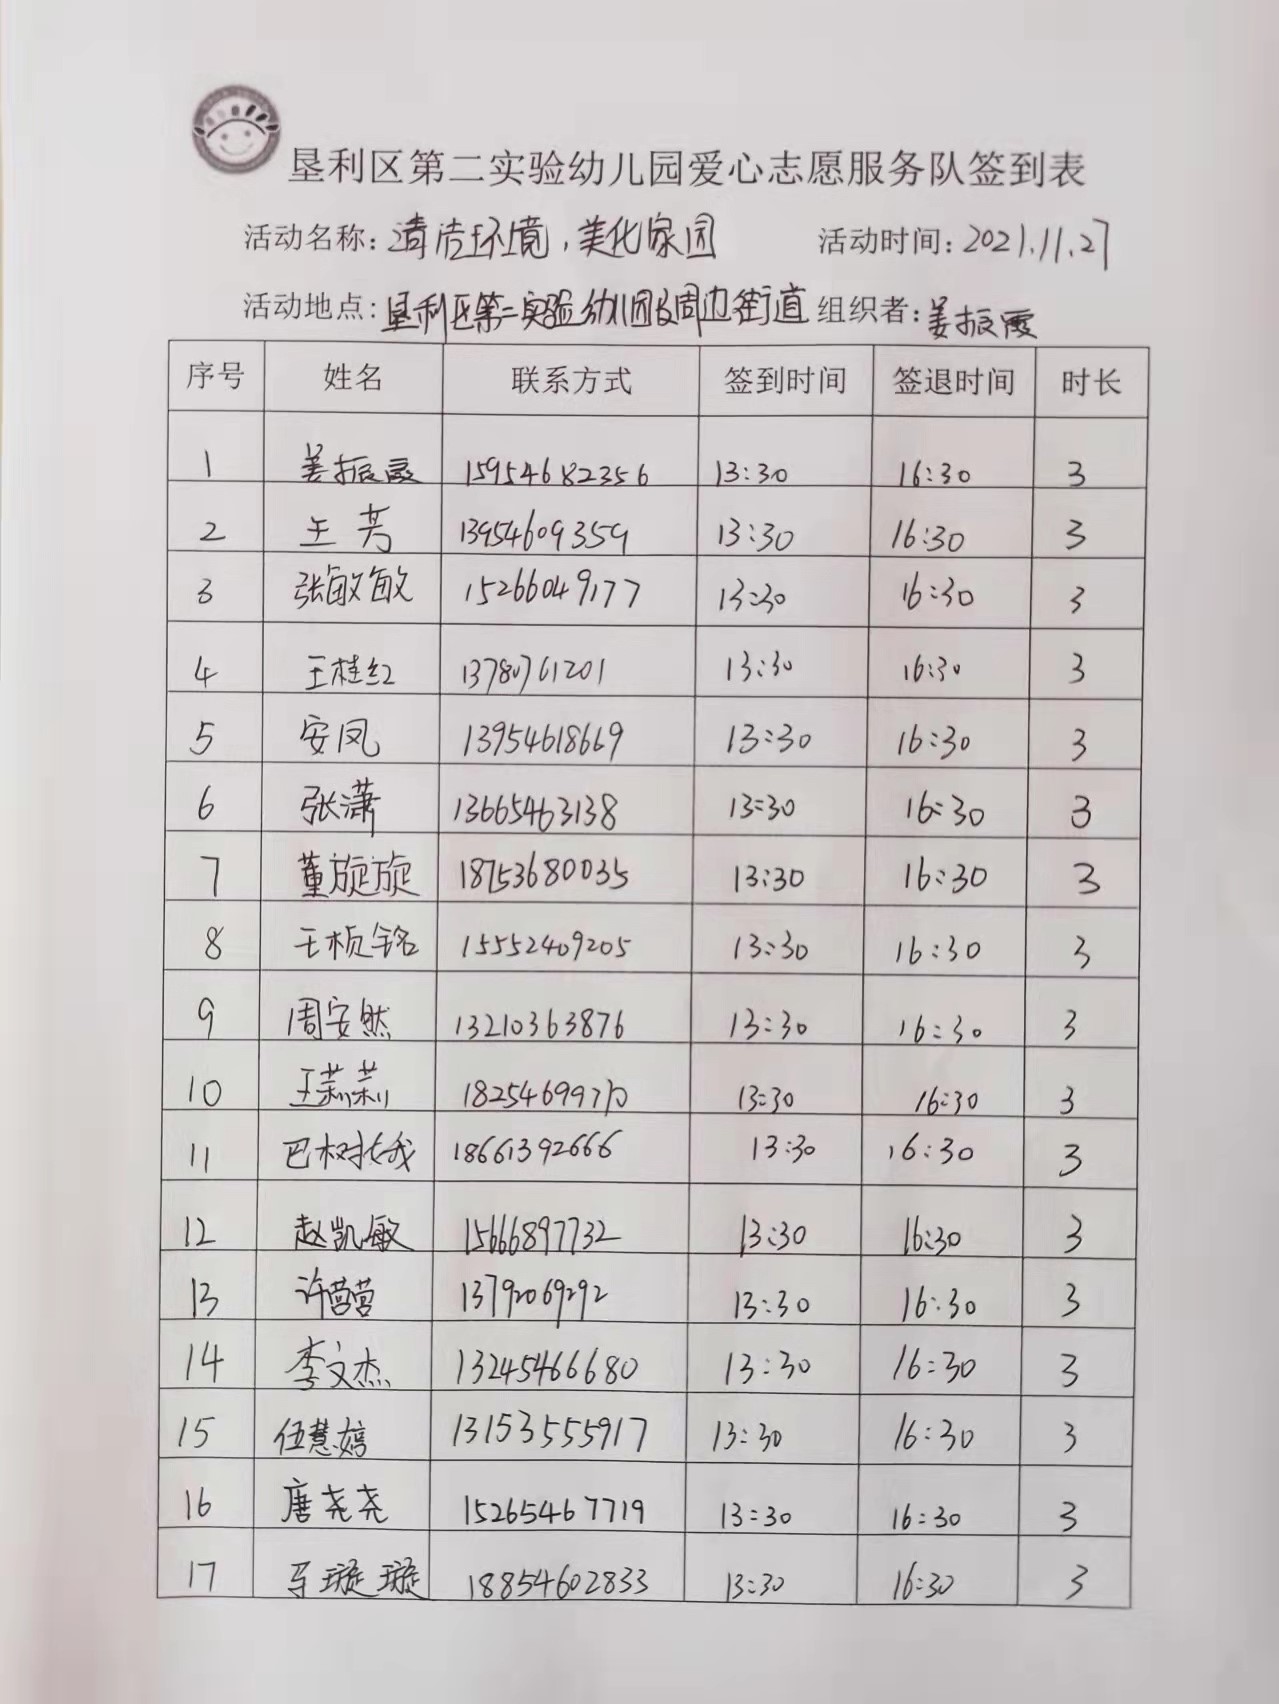 垦利区第二实验幼儿园爱心志愿服务队签到表
活动名称：清洁环境，美化家园 活动时间：2021.11.27
活动地点：垦利区第二实验幼儿园及周边街道 组织者：姜振霞
序号 姓名 联系方式 签到时间 签退时间 时长
1 姜振霞 15954682356 13:30 16:30 3
2 王芳 13954609359 13:30 16:30 3
3 张敏敏 15266049177 13:30 16:30 3
4 王桂红 13780761201 13:30 16:30 3
5 安凤 13954618669 13:30 16:30 3
6 张潇 13665463138 13:30 16:30 3
7 董旋旋 18753680035 13:30 16:30 3
8 王桢铭 15552409205 13:30 16:30 3
9 周安然 13210363876 13:30 16:30 3
10 王莉莉 13:30 16:30 3
11 18661392666 13:30 16:30 3
12 赵凯敏 15666897732 13:30 16:30 3
13 许营营 13792069292 13:30 16:30 3
14 李文杰 13245466680 13:30 16:30 3
15 伍慧婷 13153555917 13:30 16:30 3
16 唐尧尧 15265467719 13:30 16:30 3
17 马璇璇 18854602833 13:30 16:30 3